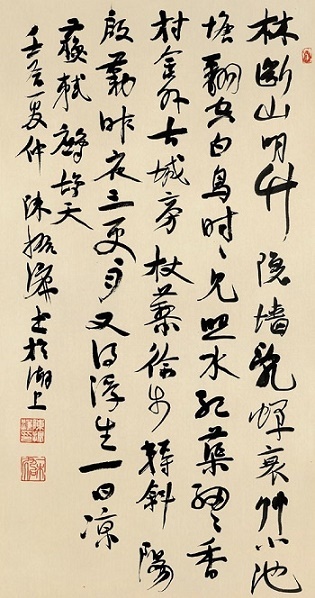 林断山明竹隐墙乱蝉衰草小池
塘翻空白鸟时々见照水红蕖细々香
村舍外古城旁杖藜徐步转斜阳
殷勤昨夜三更雨又得浮生一日凉
苏轼鹧鸪天
壬夏仲陈振濂书於湖上